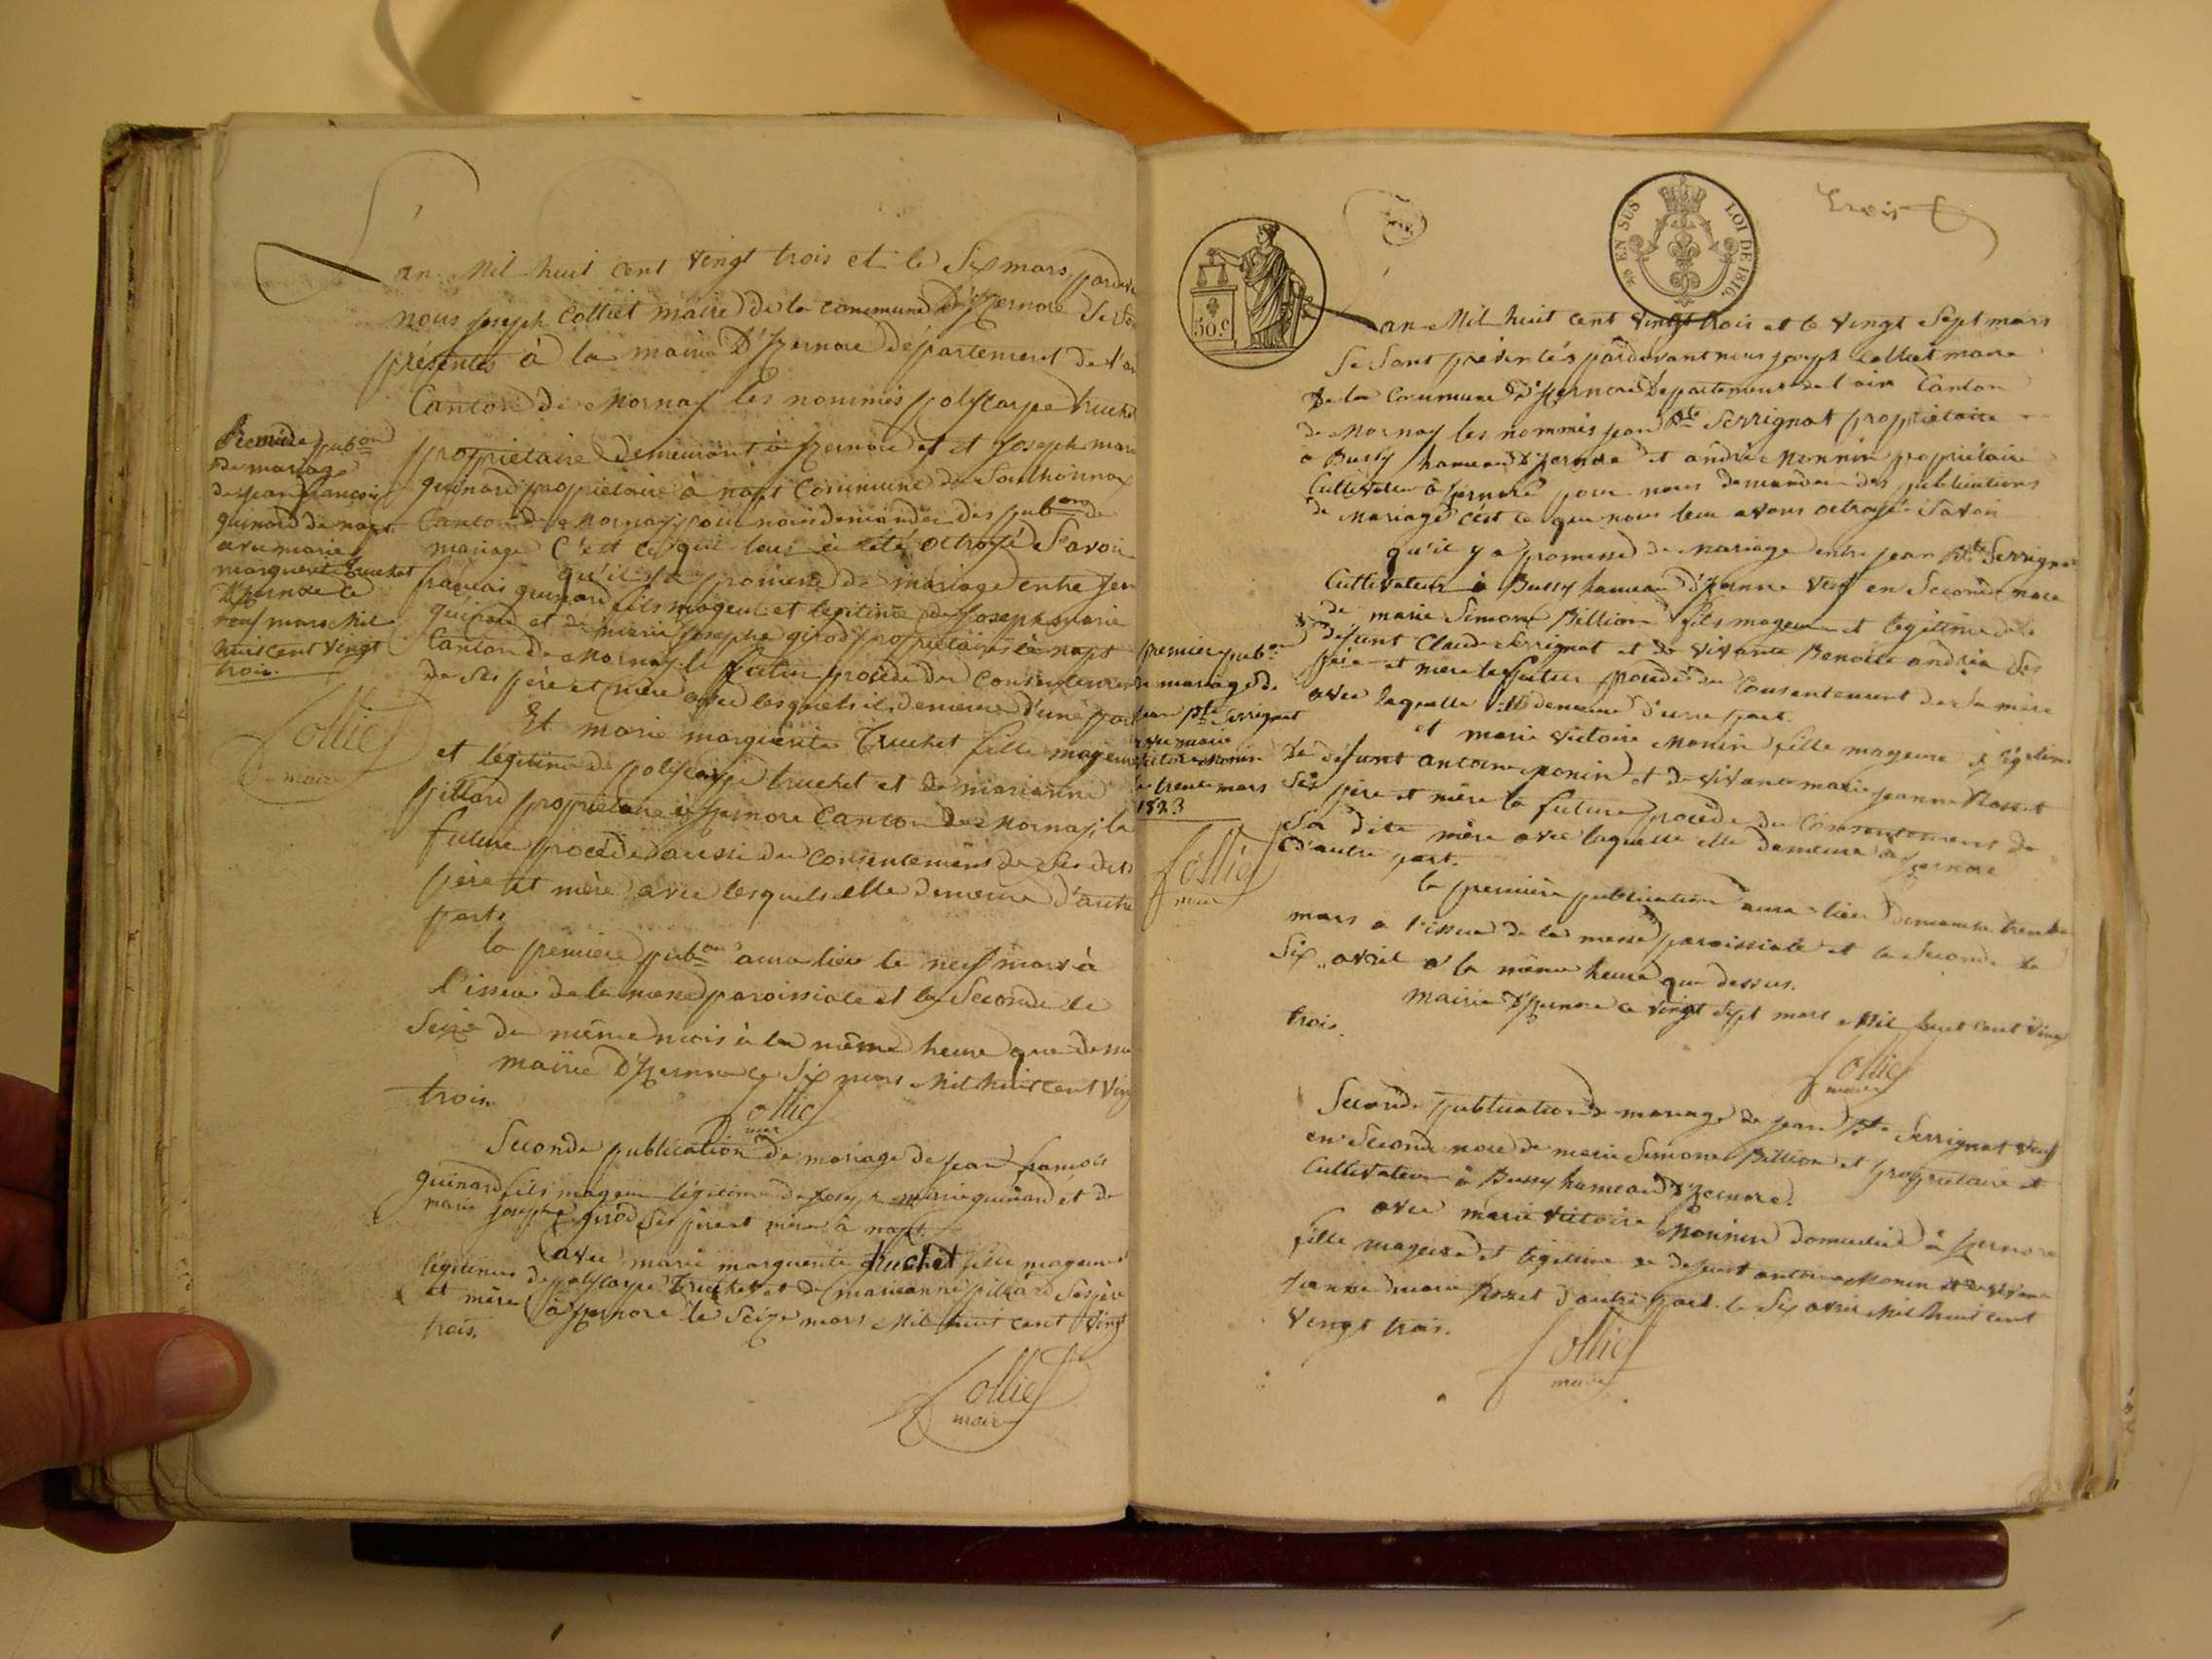 L'an Mil huit cent vingt trois et le Six mars pardev
nous joseph Colliet maire de la commune D'Izernore Se Son
présentés à la mairie D'Izernore département de l'ain
Canton de Nornay les nommés polycarpe truchet
propriétaire demeurant à Izernore et et Joseph marie
guinard propriétaire à napt Commune de Sonthonnax
Canton de Nornay pour nous demander des pub.ons de
mariage C'est ce qui leur à été octroyé Savoir
qu'il y a promesse de mariage entre Jean
françois guinard fils mageur et légitime de Joseph marie
guinard et de marie Josephe girod propriétaires à napt
Canton de Nornay le futur procède du consentement
de Ses père et mère avec lesquels il demeure d'une part
Et marie marguerite Truchet fille mageure
et légitime de polycarpe truchet et de marianne
pillard propriétaire à Izernore Canton de Nornay, la
future procède aussi du consentement de Ses dits
père et mère avec lesquels elle demeure d'autre
parts
la première pub.on aura lieu le neuf mars à
l'issue de la messe paroissiale et la Seconde le
Seize du même mois à la même heure que dessu
mairie D'Izernore ce Six mars Mil huit cent Ving
trois.
Colliet
maire
Seconde publication de mariage de jean françois
guinard fils mageur légitime de Joseph marie guinard et de
marie josephe girod Ses père et mère à napt
avec marie marguerite truchet fille mageure
légitime de polycarpe Truchet et de marieanne pillard Ses père
et mère à Izernore le Seize mars Mil huit cent Vingt
trois.
Colliet
maire
Premiere pub.on
de mariage
de jean françois
guinard de napt
avec marie
marguerite truchet
D'Izernore le
neuf mars Mil
huit cent vingt
trois.
Colliet
maire
Trois
EN SUS
LOI DE 1816.
50.c
L'an Mil huit cent vingt trois et le Vingt Sept mars
Se Sont présentés pardevant nous joseph Colliet maire
de la Commune d'Izernore Département de l'ain Canton
de Nornay les nommés jean B.te Serrignat propriétaire
à Bussy hameau d'Izernore et andré Monnin propriétaire
Cultivateur à Izernore pour nous demander des publications
de Mariage c'est ce que nous leur avons octroyé Savoir
qu'il y a promesse de mariage entre jean B.te Serrignat
Cultivateur à Bussy hameau d'Izernore Veuf en Seconde noce
de marie Simone Billion fils mageur et légitime de
défunt Claude Serrignat et de vivante Benoite andréa Ses
père et mere le futur procède du Consentement de Sa mère
avec laquelle il demeure d'une part.
et marie victoire Monin fille mageure et légitime
de défunt antoine monin et de vivante marie jeanne Rosset
Ses père et mère la future procède du Consentement de
Sa dite mère avec laquelle elle demeure à Izernore
D'autre part.
la première publication aura lieu Dimanche trente
mars a l'issue de la messe paroissiale et la Seconde le
Six avril à la même heure que dessus.
Mairie D'Izernore ce vingt Sept mars Mil huit cent Vingt
trois.
Colliet
maire
Seconde publication de mariage de jean B.te Serrignat Veuf
en Seconde noce de marie Simone Billion et propriétaire et
Cultivateur à Bussy hameau d'Izernore.
avec marie victoire Monnin domiciliée à Izernore
fille mageure et légitime de défunt antoine Monin et de vivante
Jeanne marie Rosset d'autre part. le Six avril Mil huit cent
Vingt trois.
Colliet
maire
premier pub.on
de mariage de
jean B.te Serrignat
avec marie
victoire Monin
le trente mars
1823
Colliet
maire